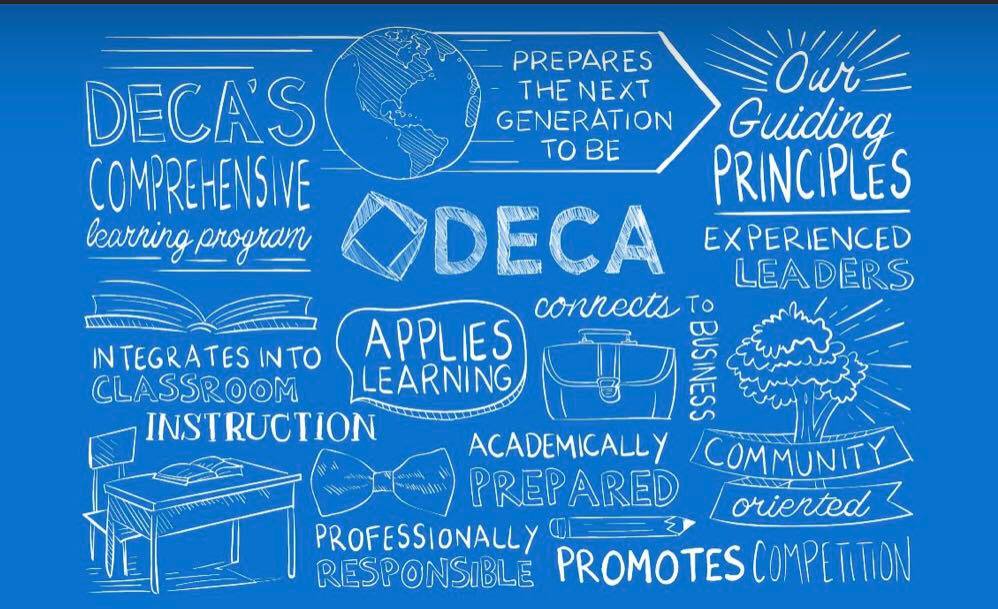 DECA'S
COMPREHENSIVE
learning program
PREPARES
THE NEXT
GENERATION
TO BE
Our
Guiding
PRINCIPLES
DECA
EXPERIENCED
LEADERS
INTEGRATES INTO
CLASSROOM
INSTRUCTION
APPLIES
LEARNING
connects TO
BUSINESS
COMMUNITY
oriented
ACADEMICALLY
PREPARED
PROFESSIONALLY
RESPONSIBLE
PROMOTES COMPETITION